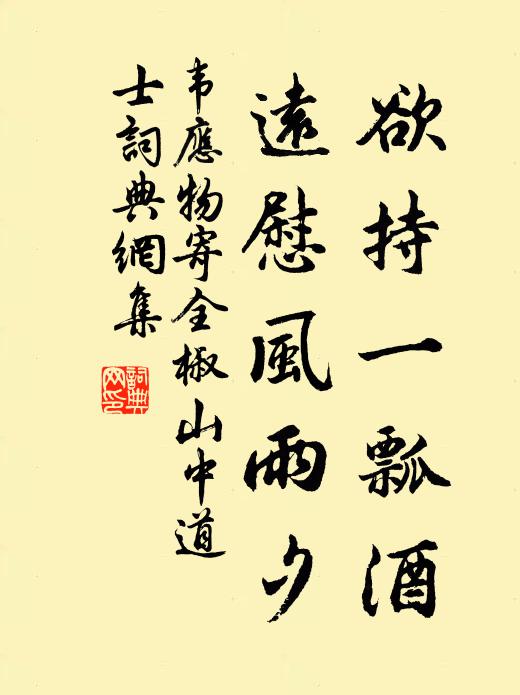 欲持一瓢酒
遠慰風雨夕
韦應物寄全椒山中道
士詞典網集
詞典
网印